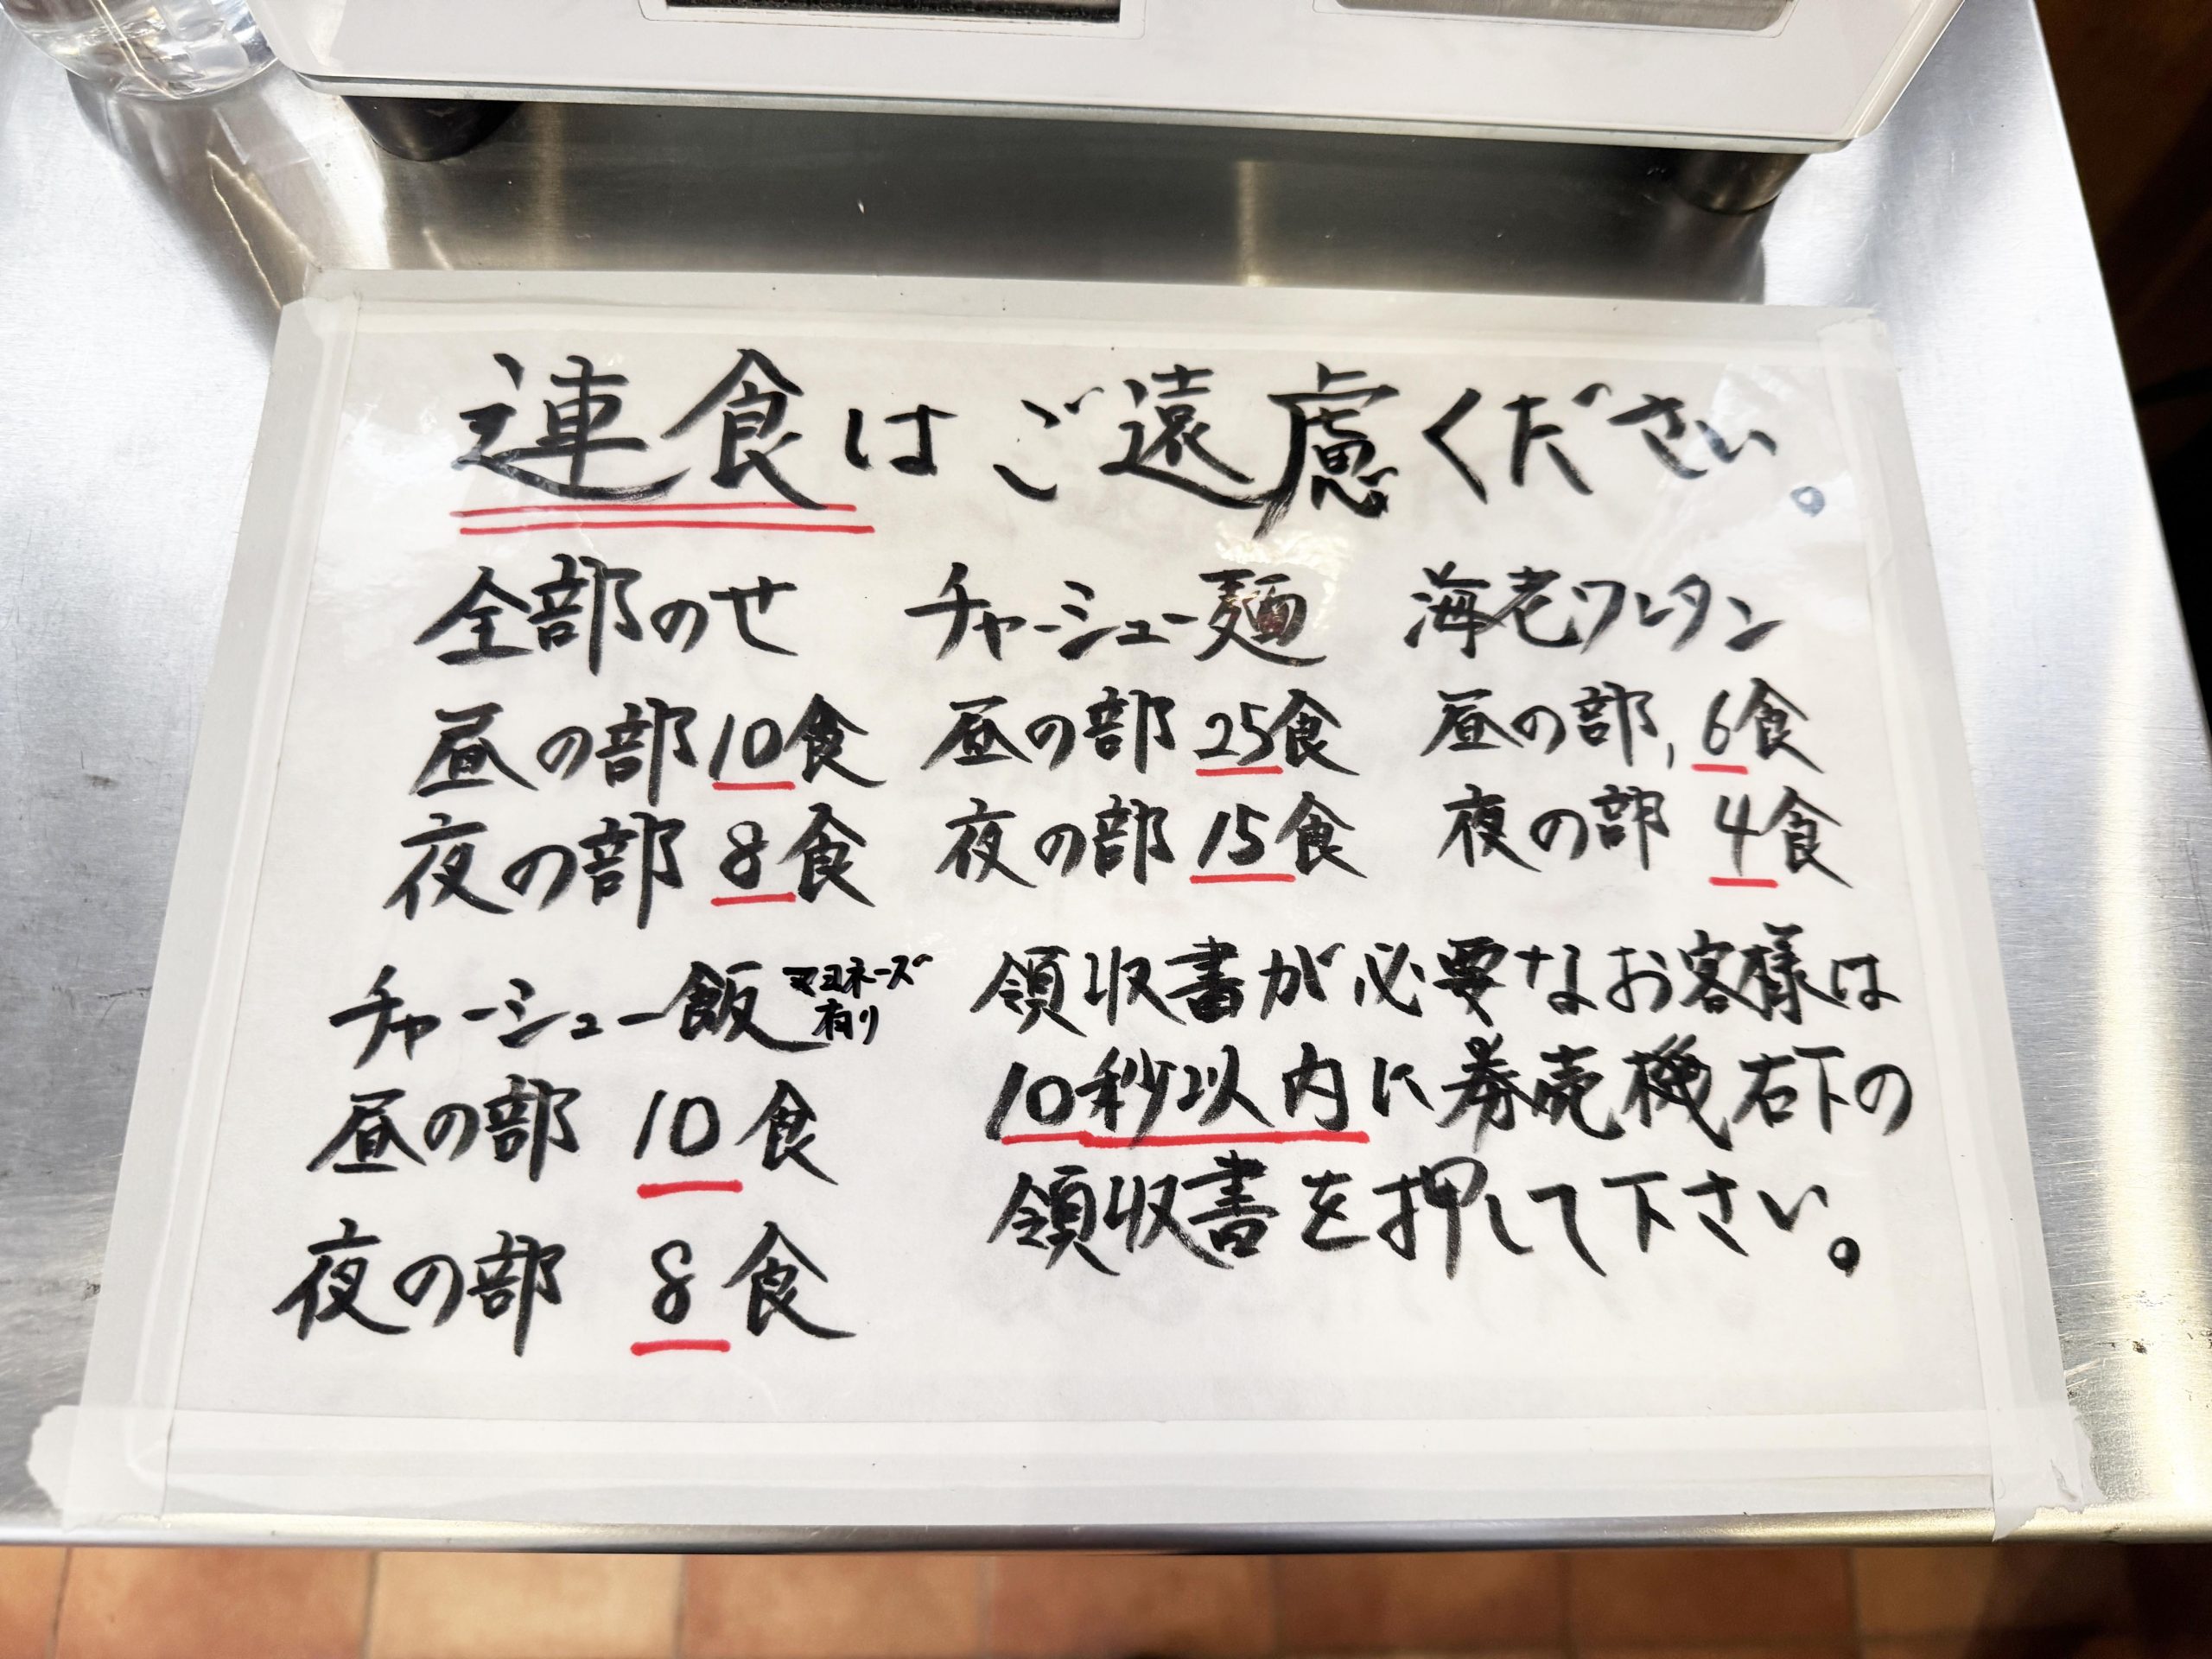 連食はご遠慮ください。
全部のせ
昼の部10食
夜の部8食
チャーシュー麺
昼の部25食
夜の部15食
海老ワンタン
昼の部,6食
夜の部4食
チャーシュー飯 マヨネーズ
有り
昼の部 10食
夜の部 8食
領収書が必要なお客様は
10秒以内に券売機右下の
領収書を押して下さい。